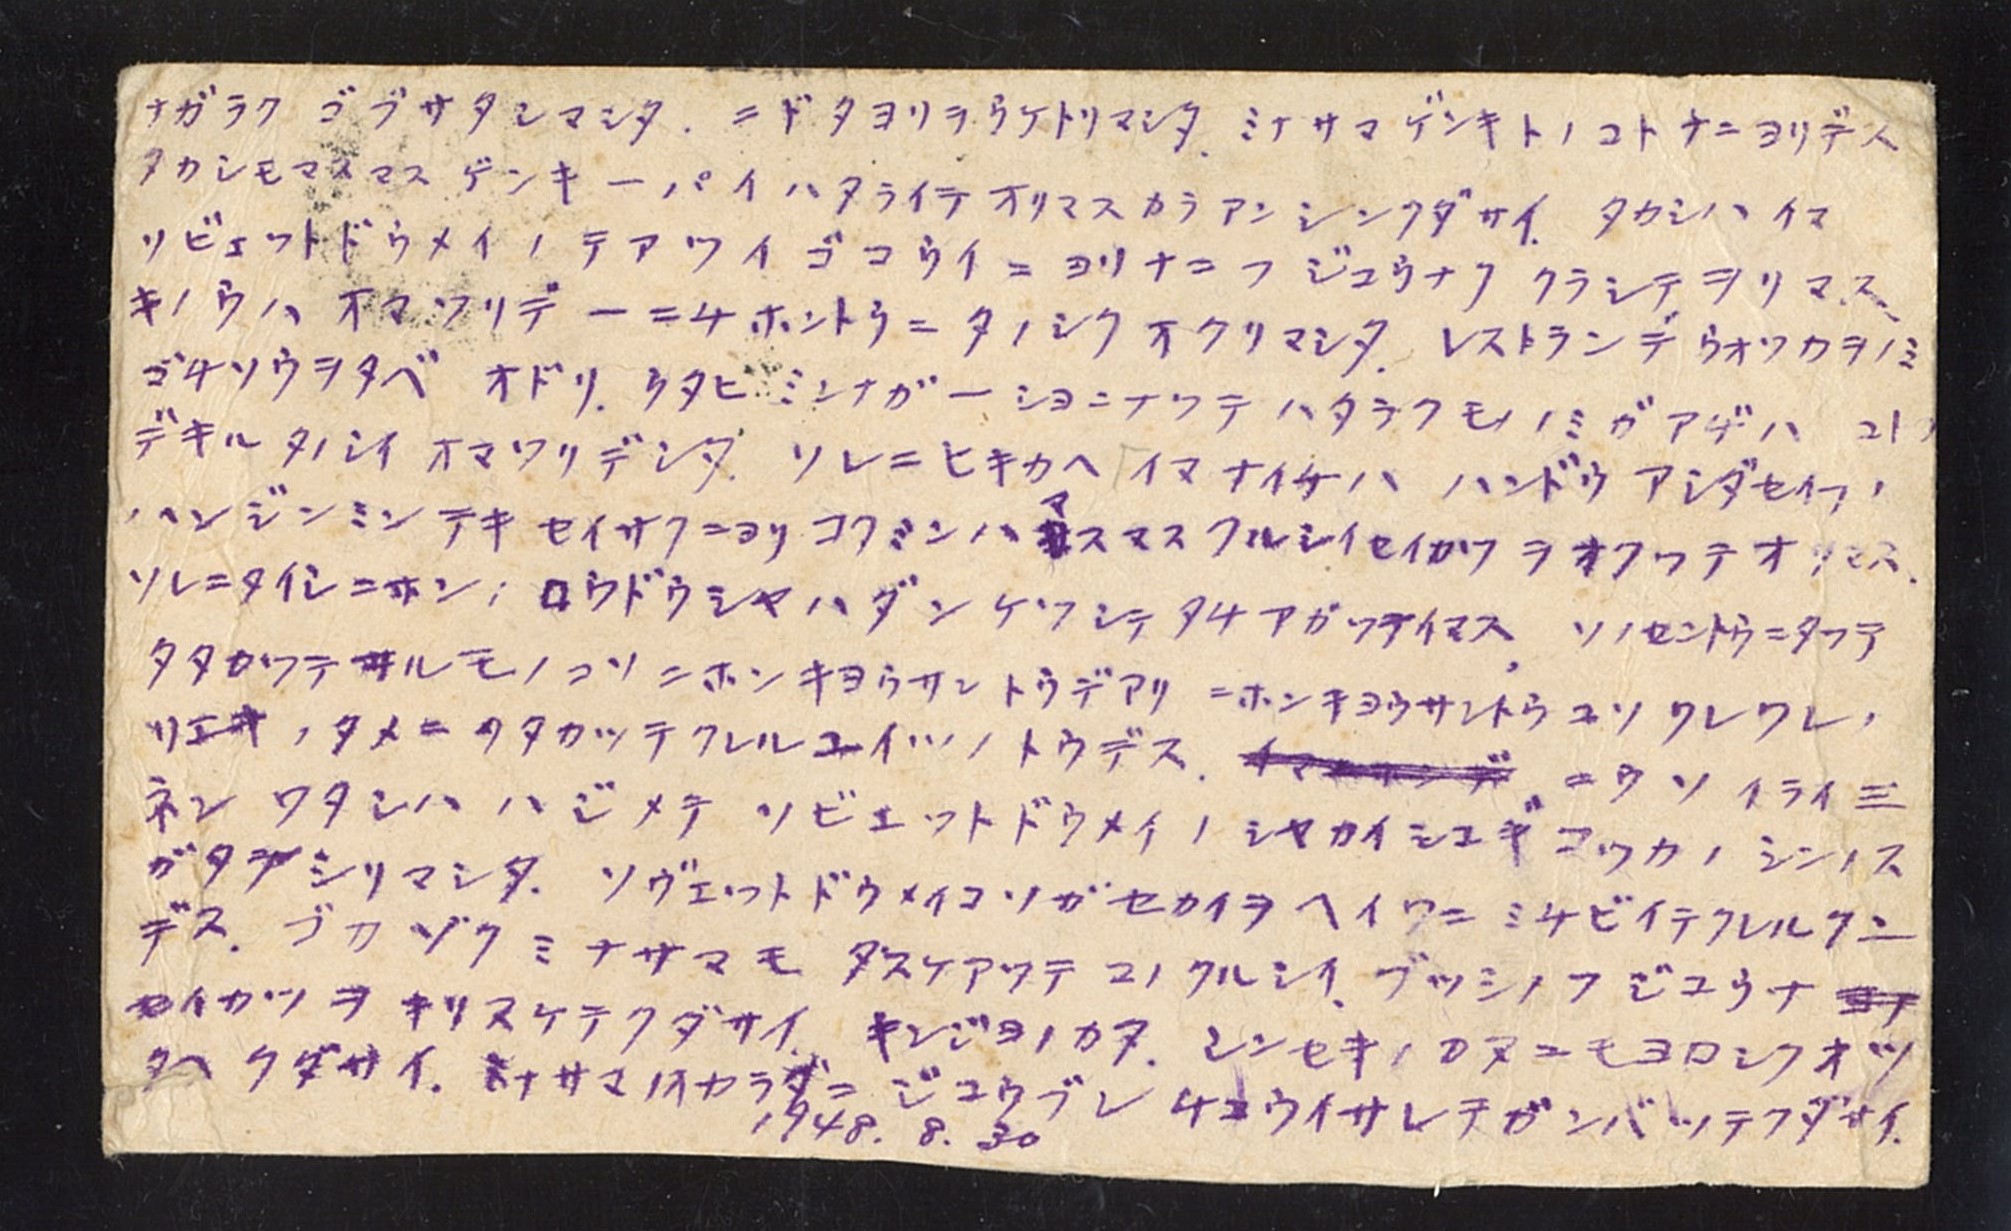 ナガラク ゴブサタシマシタ. ニドタヨリヲウケトリマシタ. ミナサマゲンキトノコトナニヨリデス
タカシモマスマス ゲンキ一パイハタライテオリマスカラアンシンクダサイ. タカシハイマ
ソビェットドウメイノテアツイゴコウイニヨリナニフジユウナククラシテヲリマス
キノウハオマツリデ一ニチホントウニタノシクオクリマシタ. レストランデウオツカヲノミ
ゴチソウヲタベ オドリ. ウタヒミンナガ一ショニナツテハタラクモノノミガアゲハ
デキルタノシイオマツリデシタ. ソレニヒキカヘイマナイチハハンドウアシダセイフノ
ハンジンミンテキセイサクニヨリコクミンハマスマスクルシイセイカツヲオクツテオリマス.
ソレニタイシニホンノロウドウシヤハダンケツシテタチアガツテイマス. ソノセントウニタツテ
タタカツテヰルモノコソニホンキヨウサントウデアリニホンキヨウサントウコソワレワレノ
リエキノタメニタタカツテクレルユイツノトウデス. イマニホンデ ニウソイライ三
ネンワタシハハジメテソビエットドウメイノシヤカイシユギコツカノシンノス
ガタヲシリマシタ. ソヴェットドウメイコソガセカイヲヘイワニミチビイテクレルクニ
デス. ゴカゾクミナサマモタスケアツテコノクルシイ、ブツシノフジユウナ
セイカツヲキリヌケテクダサイ. キンジヨノカタ. シンセキノカタニモヨロシクオツ
タヘクダサイ. ミナサマノオカラダニジユウブンチユウイサレテガンバツテクダサイ.
1948. 8. 30